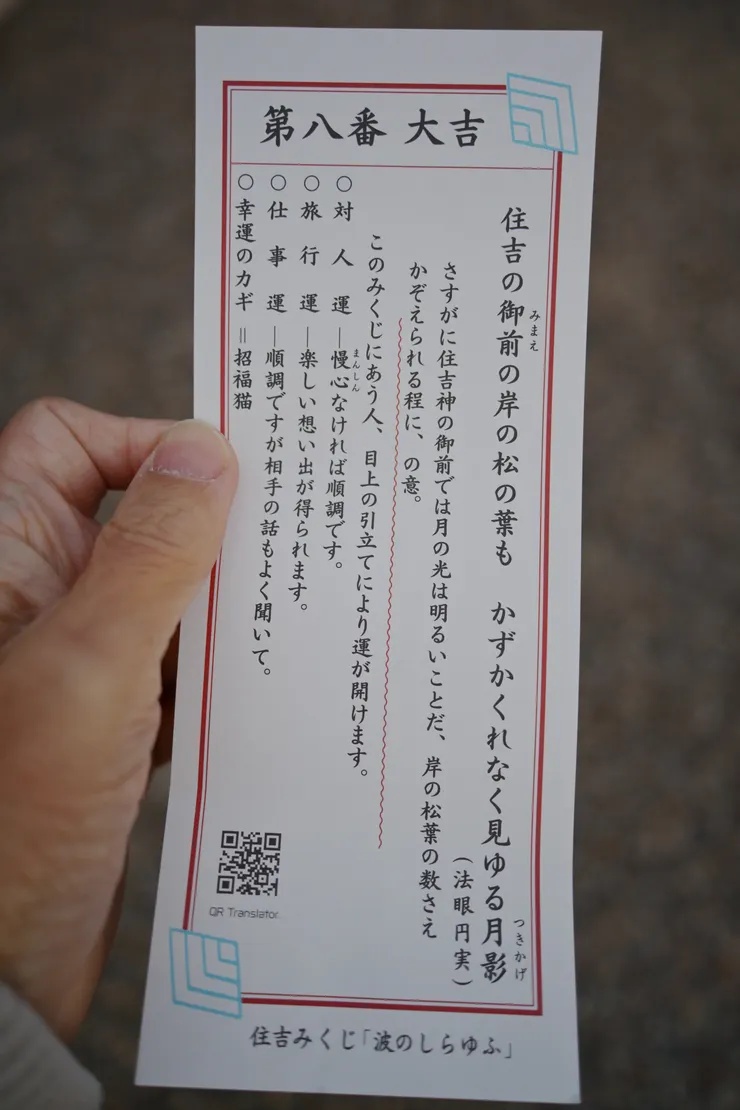 第八番 大吉
住吉の御前の岸の松の葉も　かずかくれなく見ゆる月影
みまえ
つきかげ
(法眼円実)
さすがに住吉神の御前では月の光は明るいことだ、岸の松葉の数さえ
かぞえられる程に、の意。
このみくじにあう人、目上の引立てにより運が開けます。
○対人運―慢心なければ順調です。
まんしん
○旅行運―楽しい想い出が得られます。
○仕事運―順調ですが相手の話もよく聞いて。
○幸運のカギ＝招福猫
QR Translator
住吉みくじ「波のしらゆふ」